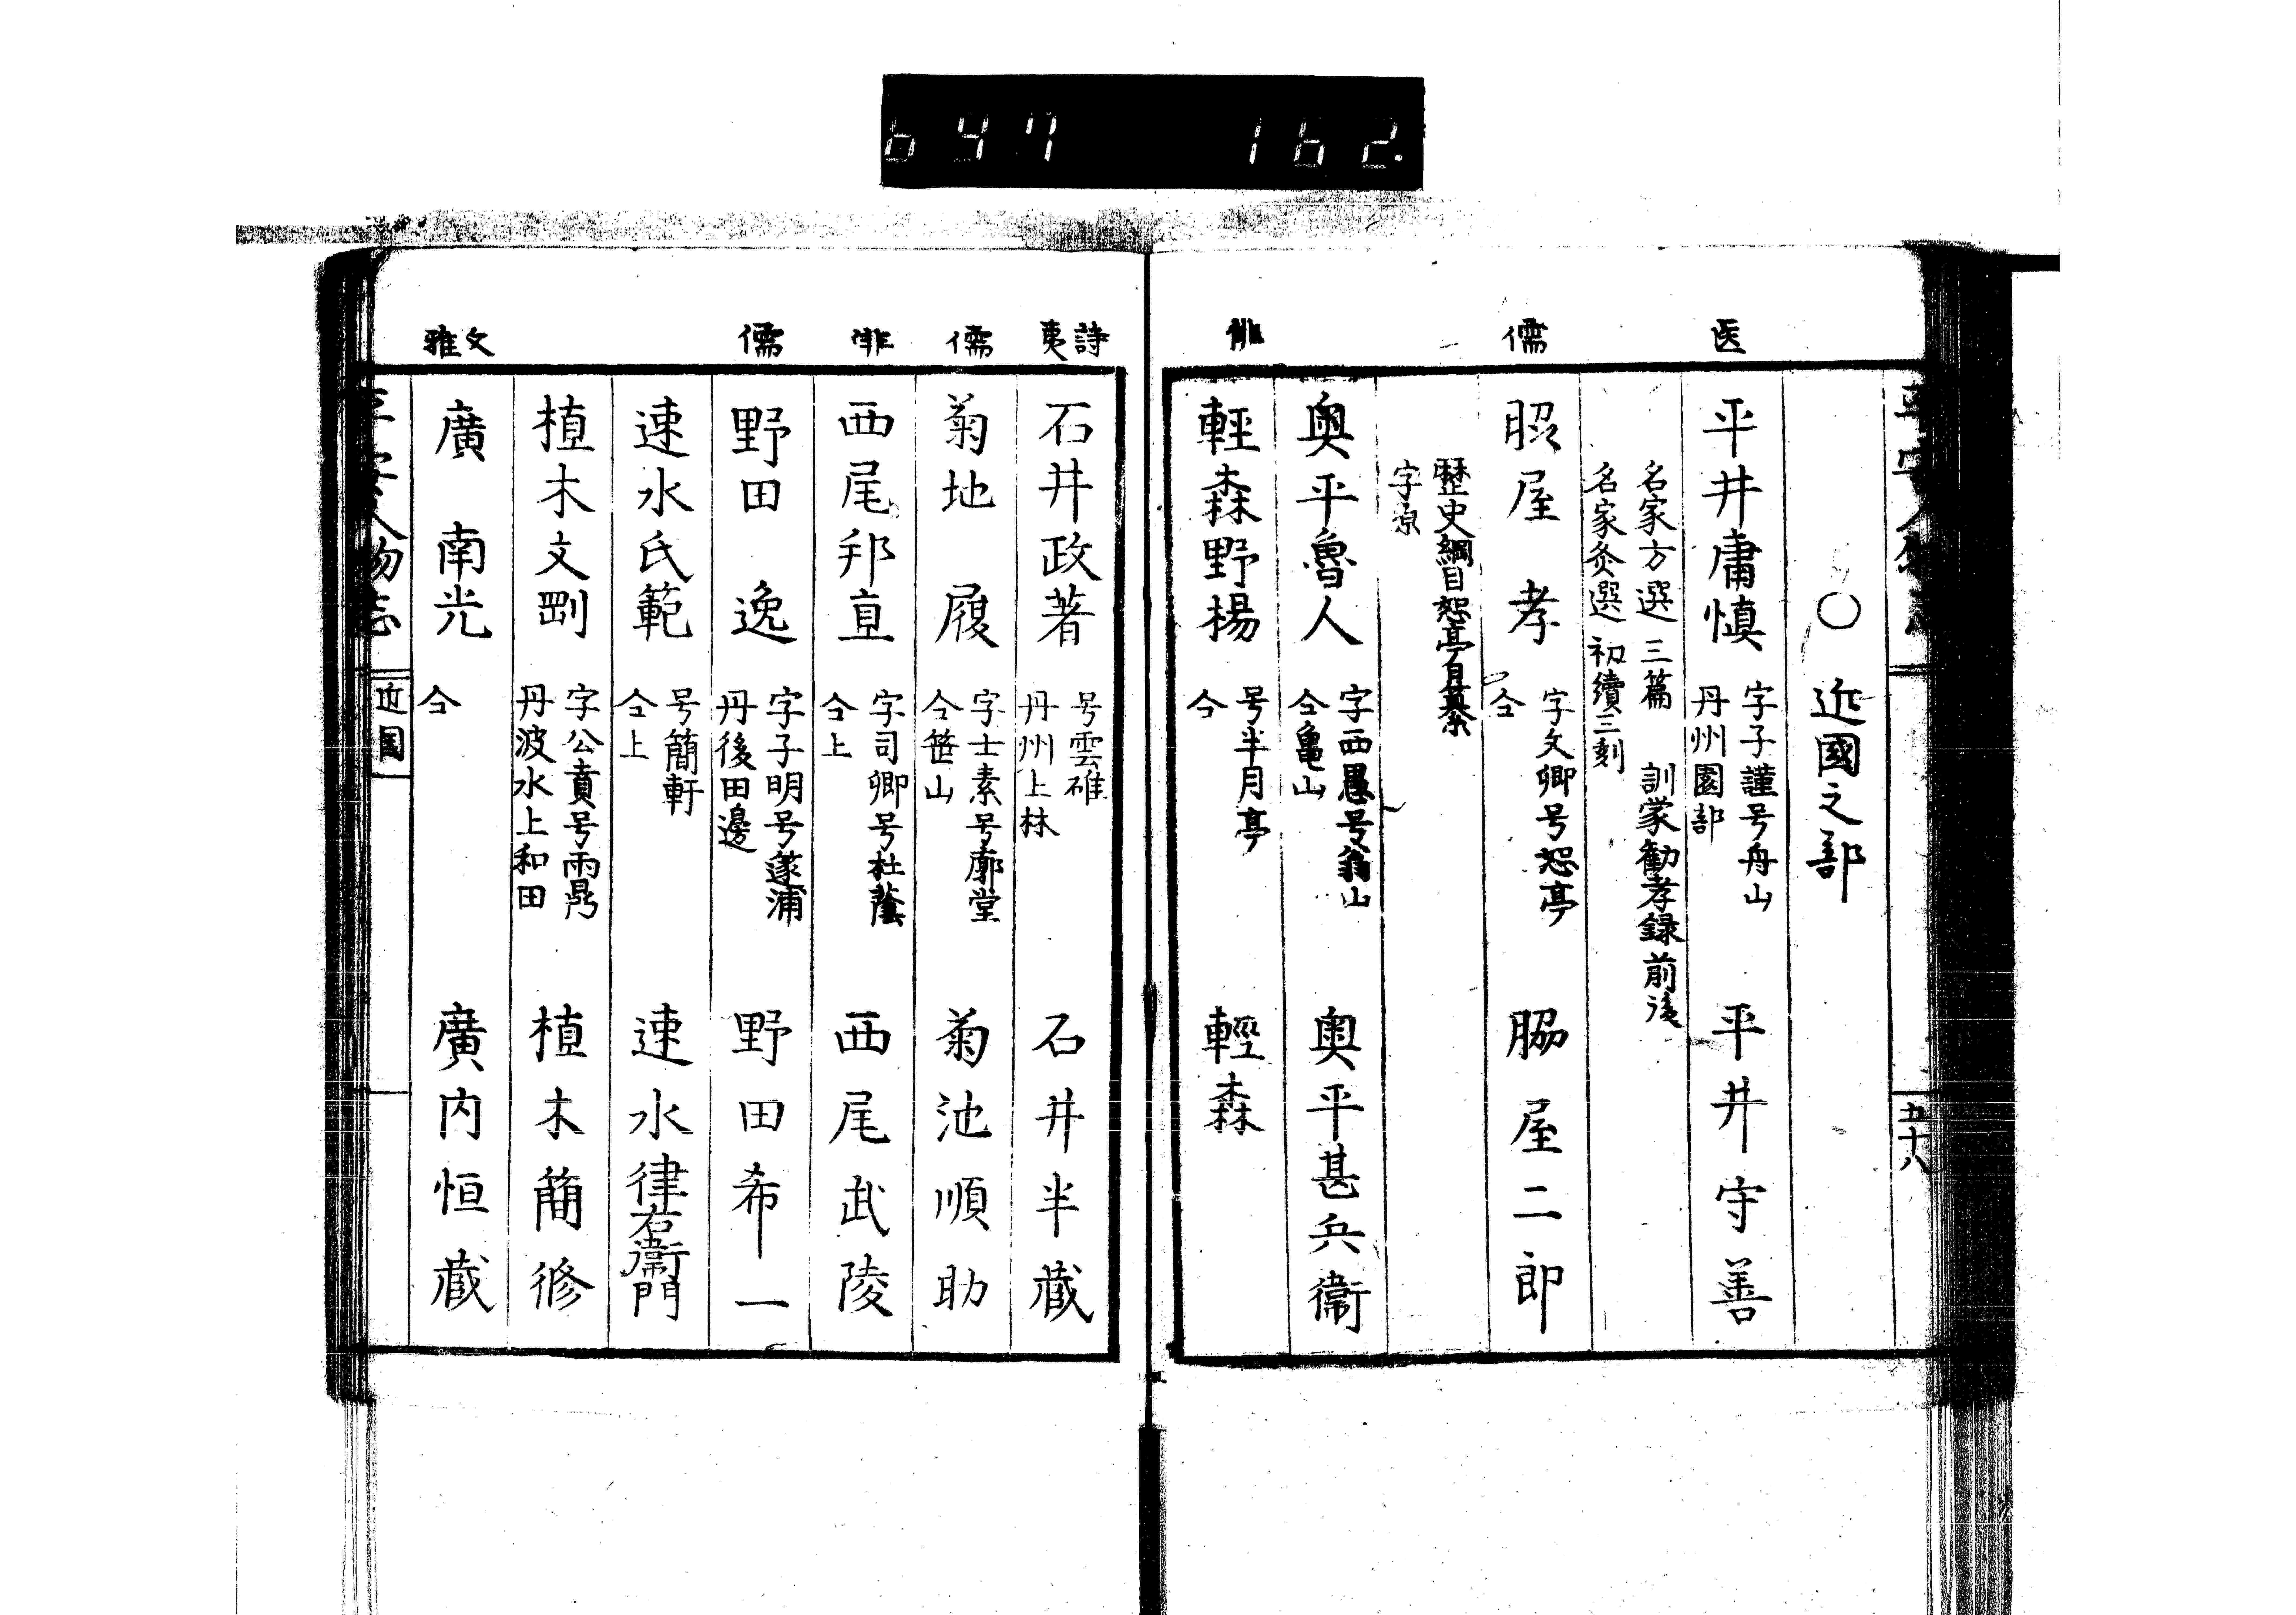 647 162.
平安人物志
五十八
○ 近國之部
医
平井庸愼 字子謹号舟山 丹州園部 平井守善
名家方選 三篇 訓蒙勧孝録 前後
名家灸選 初續三刻
儒
脇屋 孝 字文卿号恕亭 仝 脇屋二郎
歴史綱目 恕亭耳纂
字原
奥平魯人 字西愚号翁山 仝亀山 奥平甚兵衞
俳
輕森野楊 号半月亭 仝 輕森
詩 夷
石井政著 号雲碓 丹州上林 石井半蔵
儒
菊地 履 字士素号廓堂 仝笹山 菊池順助
俳
西尾邦直 字司卿号杜蔭 仝上 西尾武陵
儒
野田 逸 字子明号遂浦 丹後田邊 野田希一
速水氏範 号簡軒 仝上 速水律右衞門
植木文剛 字公賁号雨鼎 丹波水上和田 植木簡修
文雅
廣 南光 仝 廣内恒蔵
平安人物志
近國